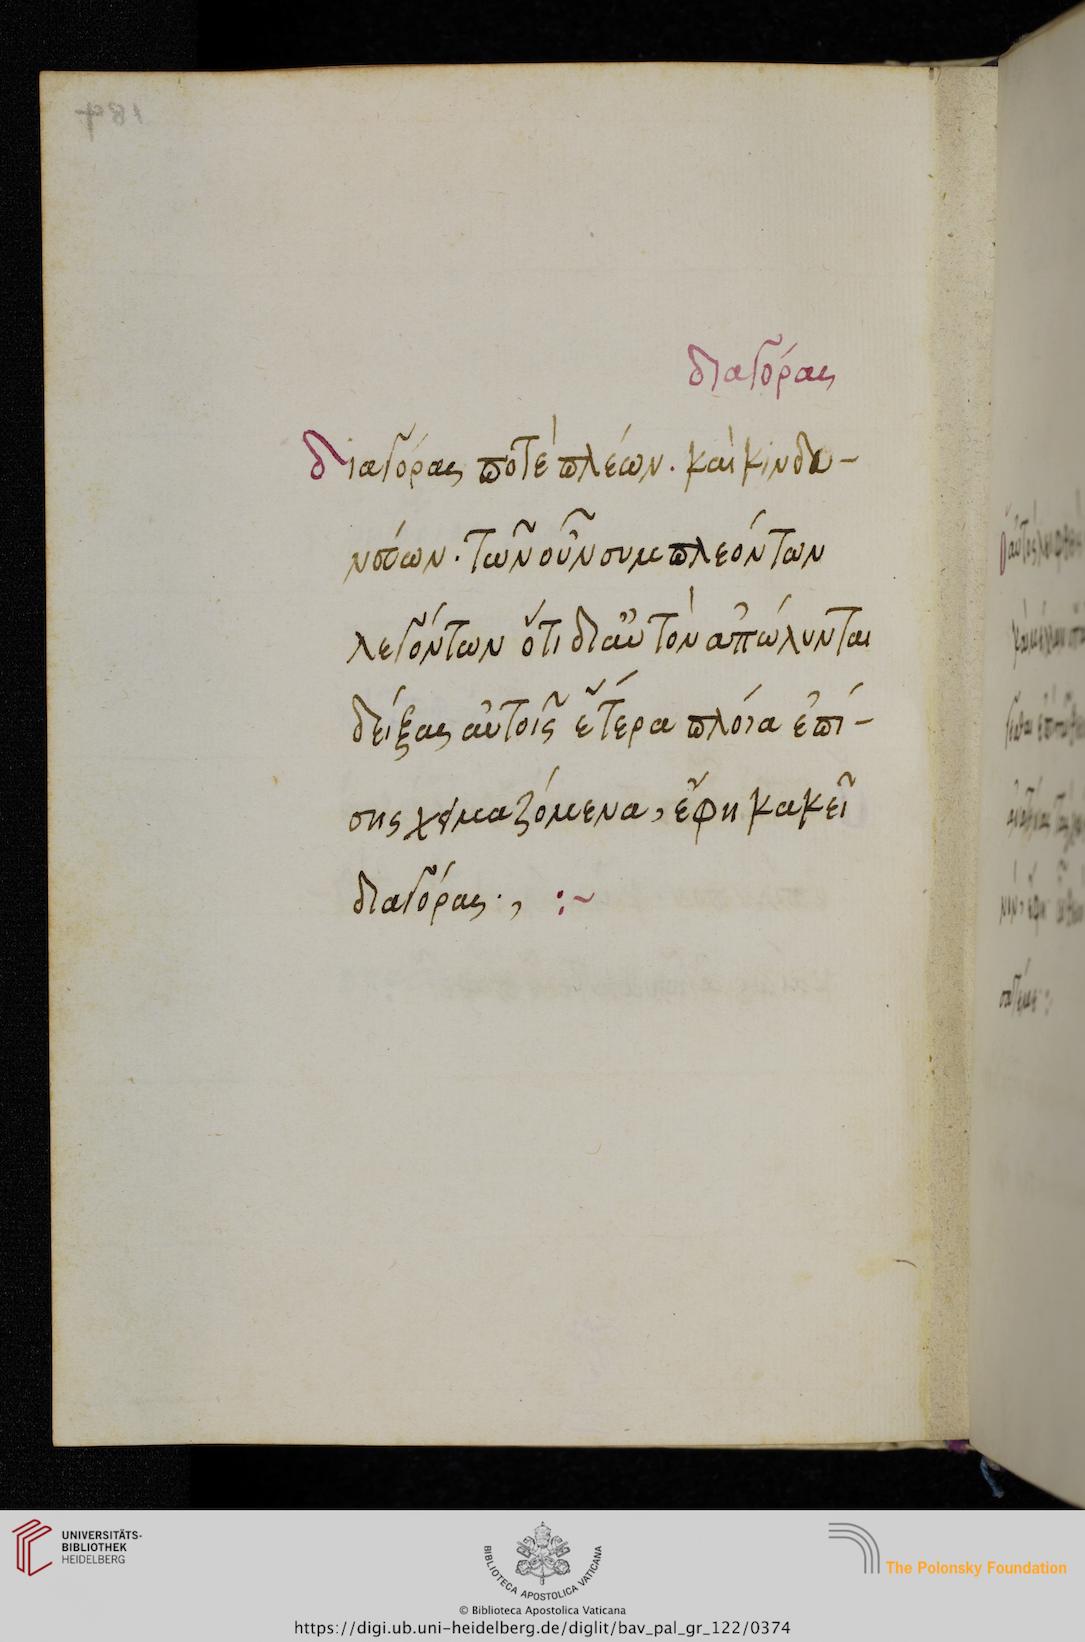 διαγόρας
διαγόρας ποτὲ πλέων. καὶ κινδυ-
νεύων. τῶν οὖν συμπλεόντων
λεγόντων ὅτι δι αὐτὸν ἀπώλυνται
δείξας αὐτοῖς ἕτερα πλόια ἐπί-
σης χειμαζόμενα, ἔφη κακεῖ
διαγόρας·, :~
UNIVERSITÄTS-
BIBLIOTHEK
HEIDELBERG
BIBLIOTECA APOSTOLICA VATICANA
The Polonsky Foundation
© Biblioteca Apostolica Vaticana
https://digi.ub.uni-heidelberg.de/diglit/bav_pal_gr_122/0374